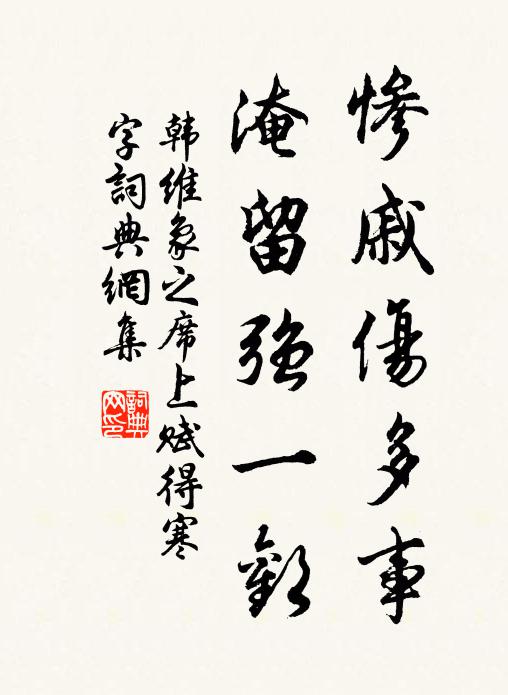 慘戚傷多事
淹留強一歡
韩维象之席上赋得寒
字詞典網集
詞典
网印